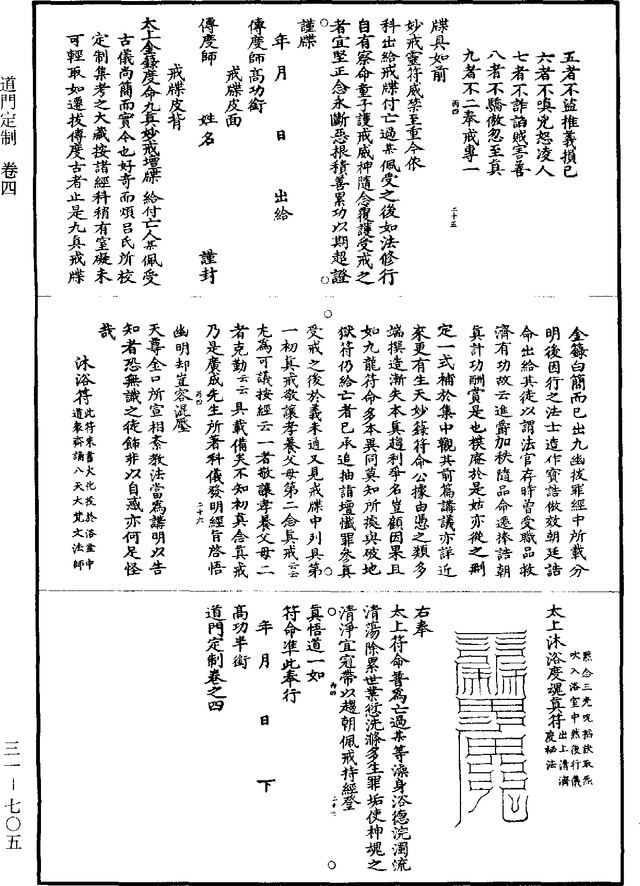 五者不盜推義損己
六者不嗔兇怒淩人
七者不詐諂賊害善
八者不驕傲忽至真
九者不二奉戒專一
牒具如前
妙戒靈符威禁至重今依
科出給戒牒付亡過某佩受之後如法修行
自有察命童子護戒威神隨念覆護受戒之
者宜堅正念永斷惡根積善累功以期超證
謹牒
年 月 日 出給
傳度師高功銜
戒牒皮面
傳度師 姓名 謹封
戒牒皮背
太上金籙度命九真妙戒壇牒 給付亡人某佩受
古儀尚簡而實今也好奇而煩呂氏所校
定制集考之大藏按諸經科稍有窒礙未
可輕取如遷拔傳度古者止是九真戒牒
金籙白簡而已出九幽拔罪經中所載分
明後因行之法士造作寶誥倣效朝廷誥
命出給其徒以謂法官存時曾受職品救
濟有功故云進爵加秩隨品命遷捧誥朝
真計功酬賞是也樸庵於是姑亦從之刪
定一式補於集中觀其前篇講議亦詳近
來更有生天妙錄符命公據由憑之類多
端撰造漸失本真趨利爭名豈顧因果且
如九龍符命多本異同莫知所據與破地
獄符仍給亡者已承追抽請壇懺罪參真
受戒之後於義未通又見戒牒中列具第
一初真戒敬讓孝養父母第二念真戒云云
尤為可議按經云一者敬讓孝養父母二
者克勤云云具載備矣不知初真念真戒
乃是廣成先生所著科儀發明經旨啓悟
幽明却豈容混壓
天尊金口所宣相紊教法當為講明以告
知者恐無識之徒飾非以自惑亦何足怪
哉
沐浴符 此符朱書火化投於浴室中
道眾齋誦八天大梵文法師
默念三光呪掐訣取炁
吹入浴室中然後行儀
太上沐浴度魂真符 出上清濟
度秘法
右奉
太上符命普為亡過某等澡身浴德浣濁流
清蕩除累世業愆洗滌多生罪垢使神魂之
清淨宜冠帶以趨朝佩戒持經登
真悟道一如
符命准此奉行
年 月 日 下
高功半銜
道門定制卷之四
道門定制 卷四
三一－七〇五